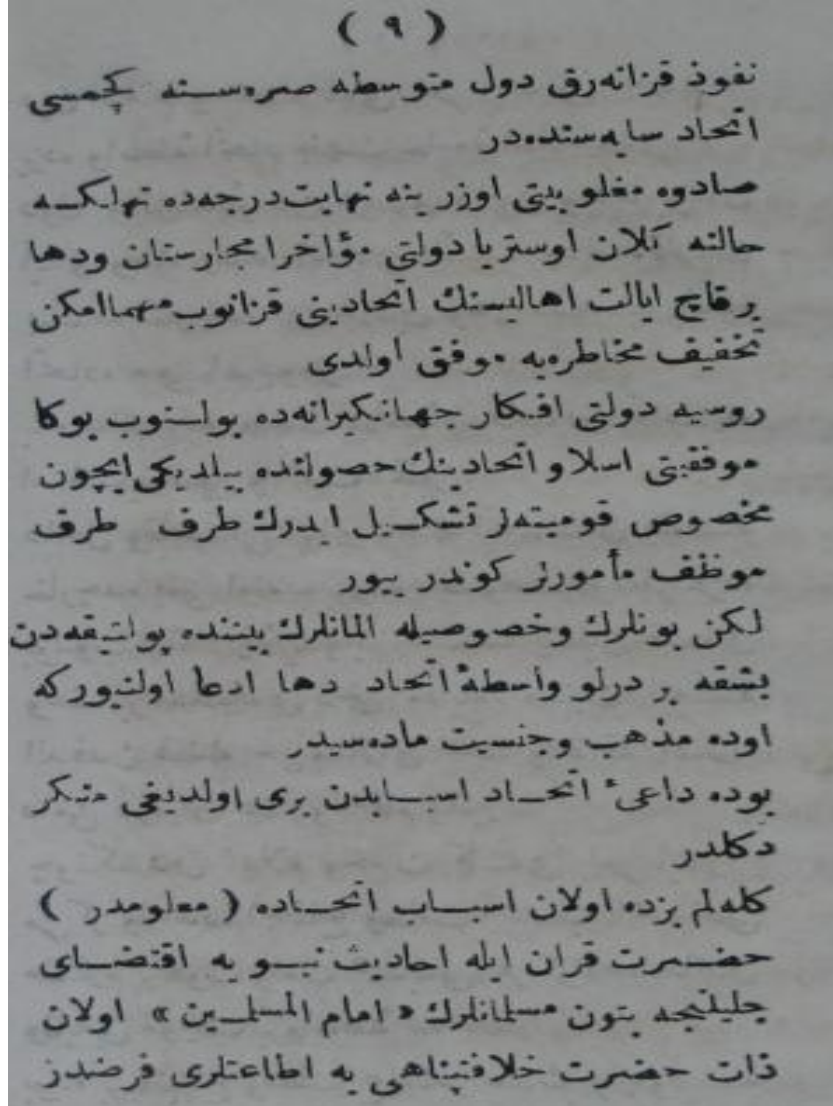 ( ٩ )
نفوذ قزانه‌رق دول متوسطه صره‌سنه كچمسی
اتحاد سایه‌سنده‌در
صادوه مغلوبیتی اوزرینه نهایت درجه‌ده تهلكه
حالنه كلان اوستریا دولتی مؤاخرا مجارستان ودها
برقاچ ایالت اهالیسنك اتحادینی قزانوب مهماامكن
تخفیف مخاطره‌یه موفق اولدی
روسیه دولتی افكار جهانكیرانه‌ده بولنوب بوكا
موفقیتی اسلاو اتحادینك حصولنده بیلدیكی ایچون
مخصوص قومیته‌لر تشكیل ایدرك طرف طرف
موظف مأمورلر كوندرییور
لكن بونلرك وخصوصیله المانلرك بیننده پولتیقه‌دن
بشقه بر درلو واسطهٔ اتحاد دها ادعا اولنیوركه
اوده مذهب وجنسیت ماده‌سیدر
بوده داعیٔ اتحاد اسبابدن بری اولدیغی منكر
دكلدر
كله‌لم بزده اولان اسباب اتحاده ( معلومدر )
حضرت قران ایله احادیث نبویه اقتضای
جلیلنجه بتون مسلمانلرك « امام المسلمین » اولان
ذات حضرت خلافتپناهی یه اطاعتلری فرضدر